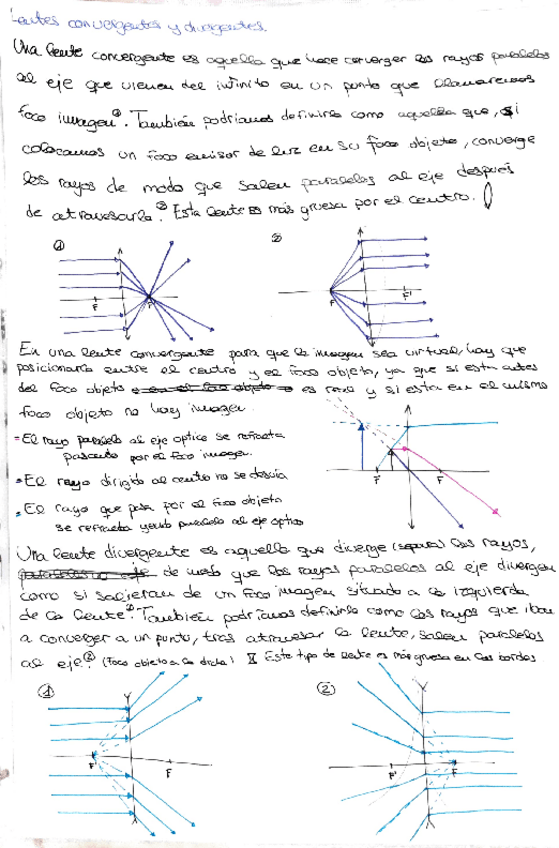 Lentes convergentes y divergentes.
Una lente convergente es aquella que hace converger los rayos paralelos
al eje que vienen del infinito en un punto que llamaremos
foco imagen①. También podríamos definirla como aquella que, si
colocamos un foco emisor de luz en su foco objeto, converge
los rayos de modo que salen paralelos al eje después
de atravesarla.② Esta lente es más gruesa por el centro.
① ②
F F' F F'
En una lente convergente para que la imagen sea virtual, hay que
posicionarla entre el centro y el foco objeto, ya que si esta antes
del foco objeto es real y si esta en el mismo
foco objeto no hay imagen.
- El rayo paralelo al eje optico se refracta
pasando por el foco imagen.
- El rayo dirigido al centro no se desvia
- El rayo que pasa por el foco objeto
se refracta yendo paralelo al eje optico
F F
Una lente divergente es aquella que diverge (separa) los rayos,
de modo que los rayos paralelos al eje divergen
como si salieran de un foco imagen situado a la izquierda
de la lente①. También podríamos definirla como los rayos que iban
a converger a un punto, tras atravesar la lente, salen paralelos
al eje② (Foco objeto a la drcha) Este tipo de lente es más gruesa en los bordes
① ②
F' F F' F